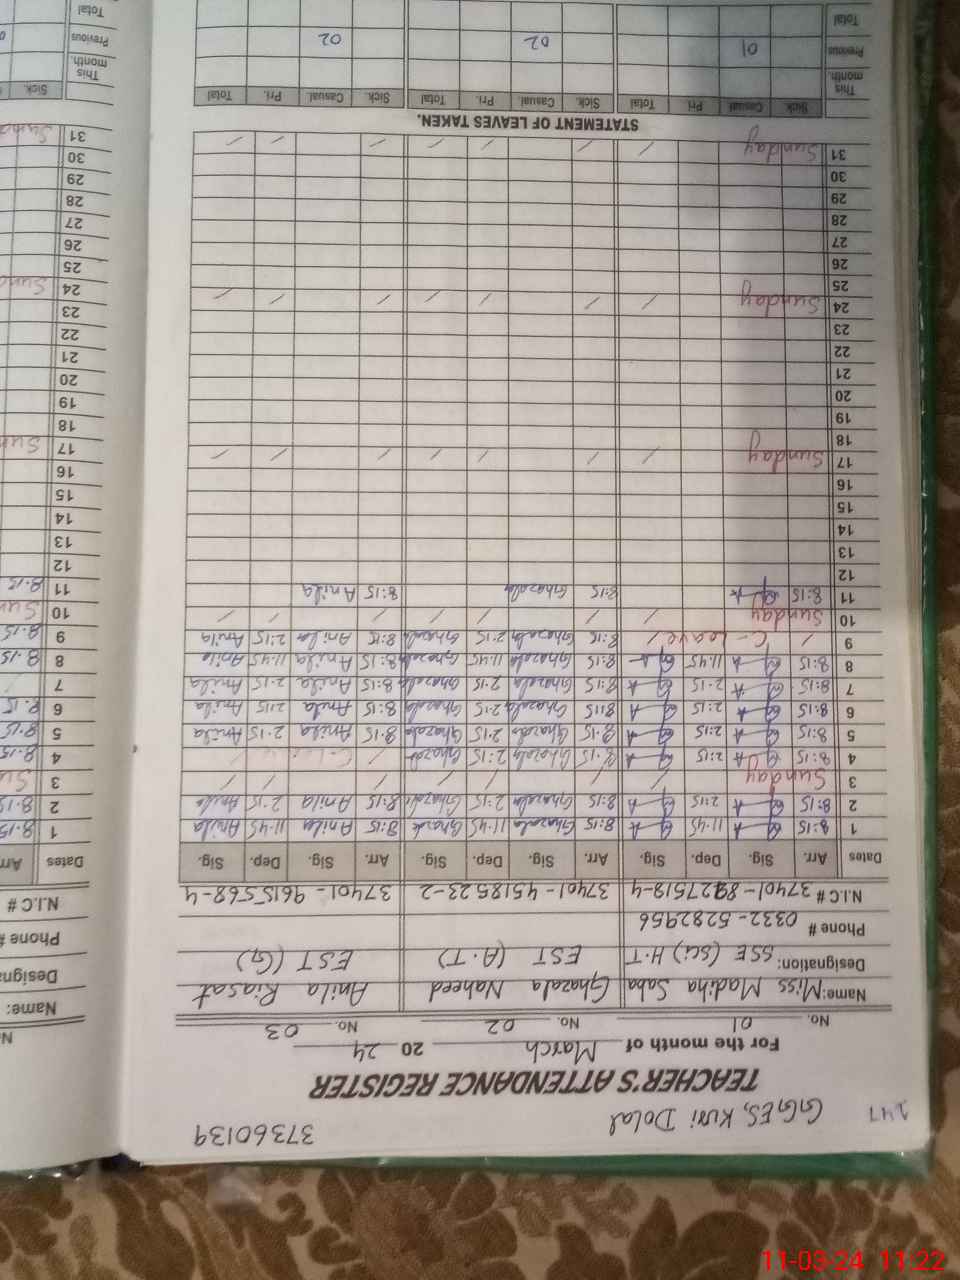 247
GGES, Kuri Dolal 37360139
TEACHER'S ATTENDANCE REGISTER
For the month of March 20 24
No. 01 No. 02 No. 03
Name: Miss Madiha Saba Ghazala Naheed Anila Riasat
Designation: SSE (Sci) H.T EST (A.T) EST (G)
Phone # 0332-5282956
N.I.C # 37401-8927519-4 37401-4518523-2 37401-9615568-4
Dates Arr. Sig. Dep. Sig. Arr. Sig. Dep. Sig. Arr. Sig. Dep. Sig.
1 8:15 11.45 8:15 Ghazala 11.45 8:15 Anila 11.45 Anila
2 8:15 2:15 8:15 Ghazala 2.15 Ghazala 8:15 Anila 2.15 Anila
3 Sunday / / / / / / /
4 8:15 2:15 8.15 Ghazala 2:15 Ghazala / C-Leave / /
5 8:15 2:15 8.15 Ghazala 2.15 Ghazala 8:15 Anila 2.15 Anila
6 8:15 2:15 8:15 Ghazala 2:15 Ghazala 8:15 Anila 2:15 Anila
7 8:15 2.15 8:15 Ghazala 2.15 Ghazala 8:15 Anila 2.15 Anila
8 8:15 11.45 8:15 Ghazala 11.45 Ghazala 8:15 Anila 11.45 Anila
9 / C-Leave / 8:15 Ghazala 2.15 Ghazala 8:15 Anila 2:15 Anila
10 Sunday / / / / / / /
11 8:15 8:15 Ghazala 8:15 Anila
12
13
14
15
16
17 Sunday / / / / / / /
18
19
20
21
22
23
24 Sunday / / / / / / /
25
26
27
28
29
30
31 Sunday / / / / / / /
STATEMENT OF LEAVES TAKEN.
Sick. Casual Pri. Total Sick. Casual Pri. Total Sick. Casual. Pri. Total
This month.
Previous 01 02 02
Total
Name:
Phone #
N.I.C #
Dates
1 8:15
2
3
4 8:15
5 8:15
6 8.15
7
8 8.15
9 8.15
10
11 8.15
12
13
14
15
16
17
18
19
20
21
22
23
24
25
26
27
28
29
30
31
Sick.
This month.
Previous
Total
11-03-24 11:22